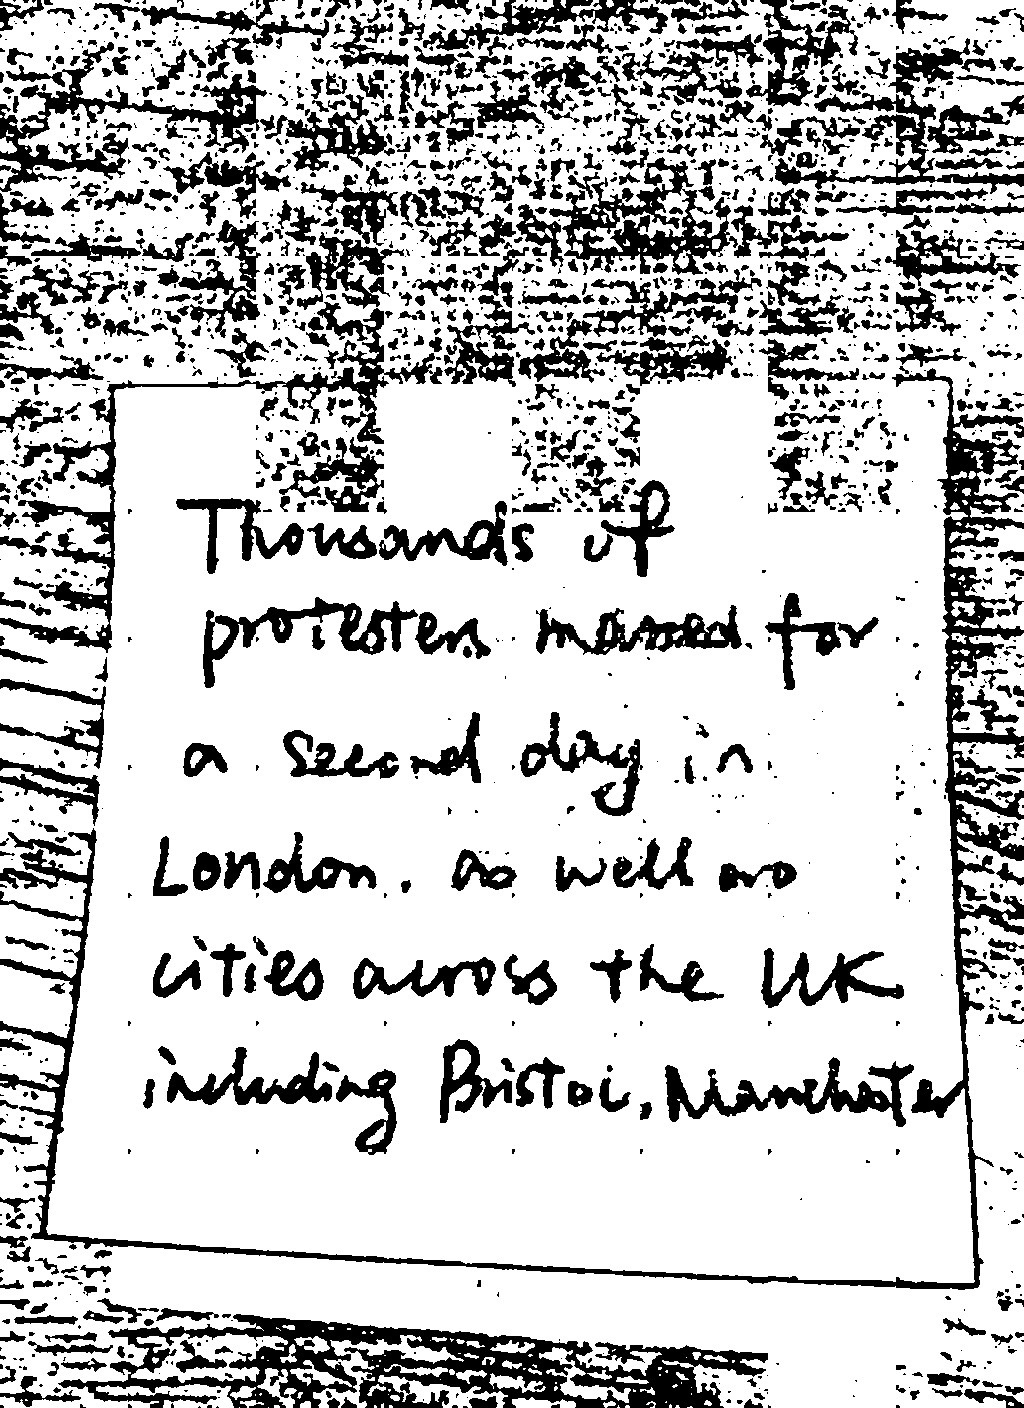 Thousands of
protesters massed for
a second day in
London. as well as
cities across the UK
including Bristol, Manchester